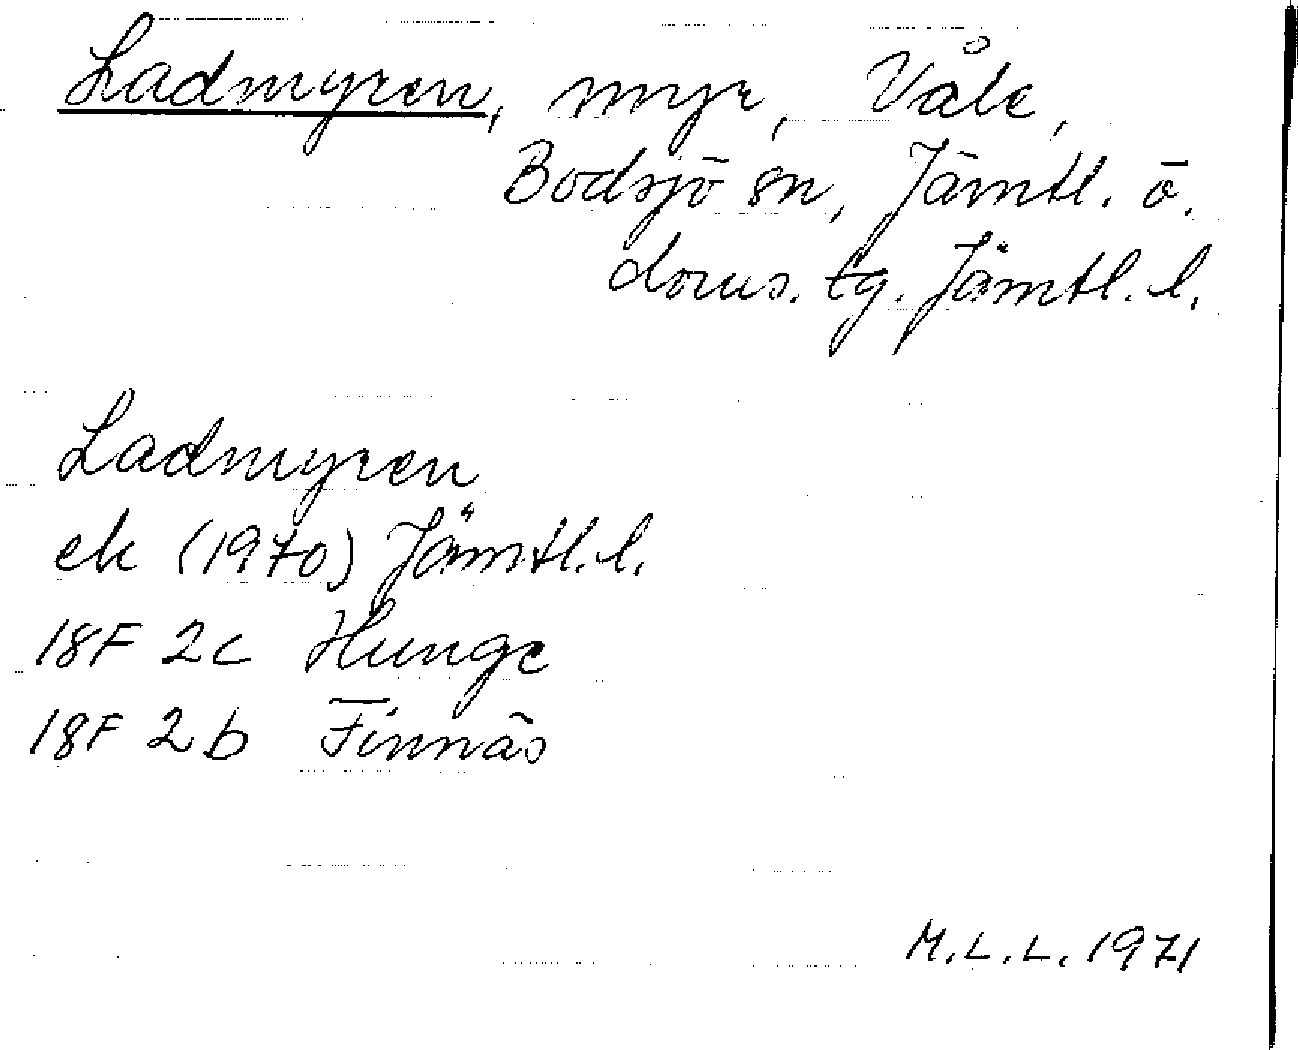 Ladmyren, myr, Våle,
Bodsjö sn, Jämtl. ö.
doms. tg. Jämtl. l.
Ladmyren
ek (1970) Jämtl. l.
18F 2c Hunge
18F 2b Finnäs
M.L.L. 1971